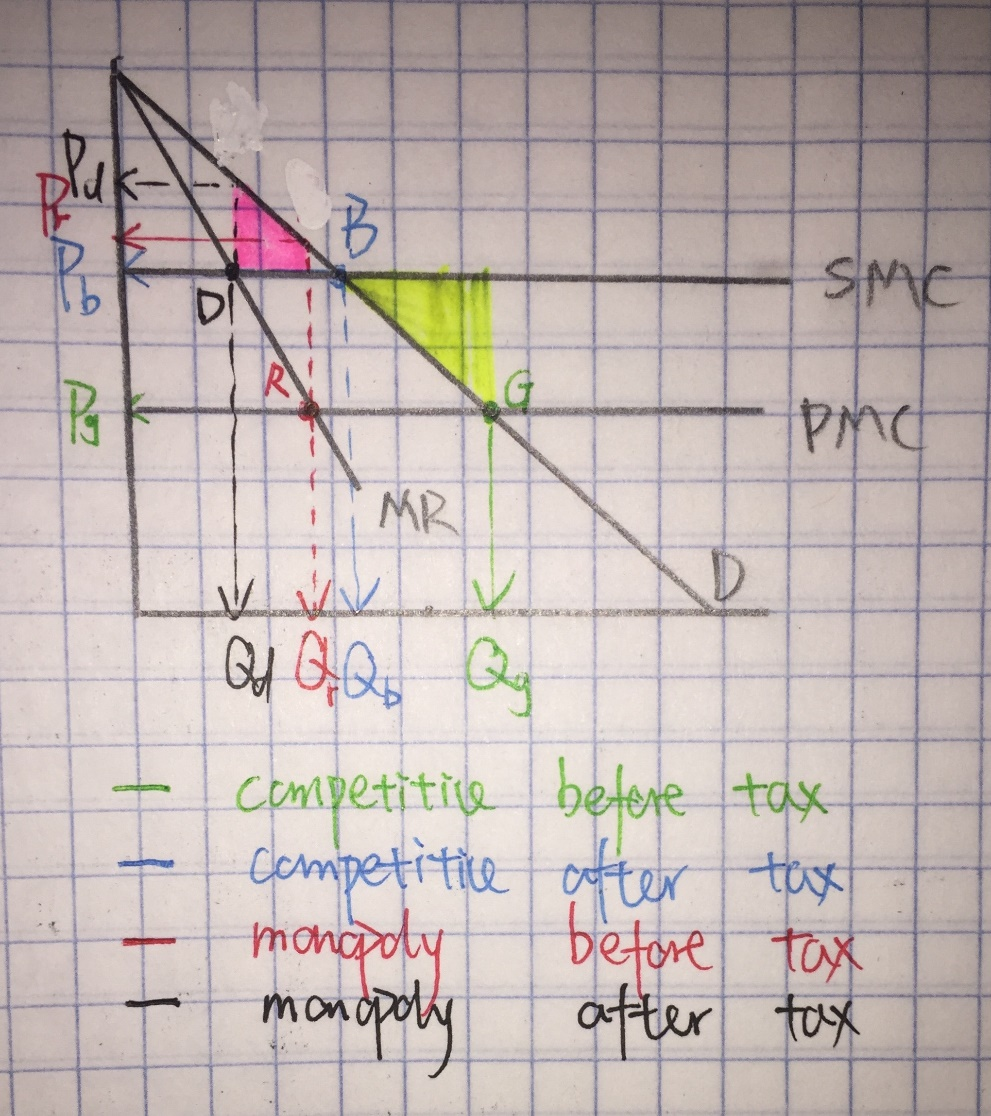 Pd
Pr
B
Pb
SMC
D
R
G
Pg
PMC
MR
D
Qd Qr Qb Qg
competitive before tax
competitive after tax
monopoly before tax
monopoly after tax